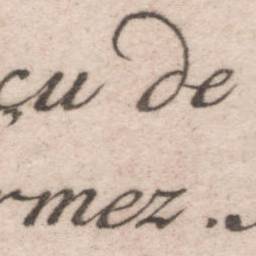 çu de
rmez.